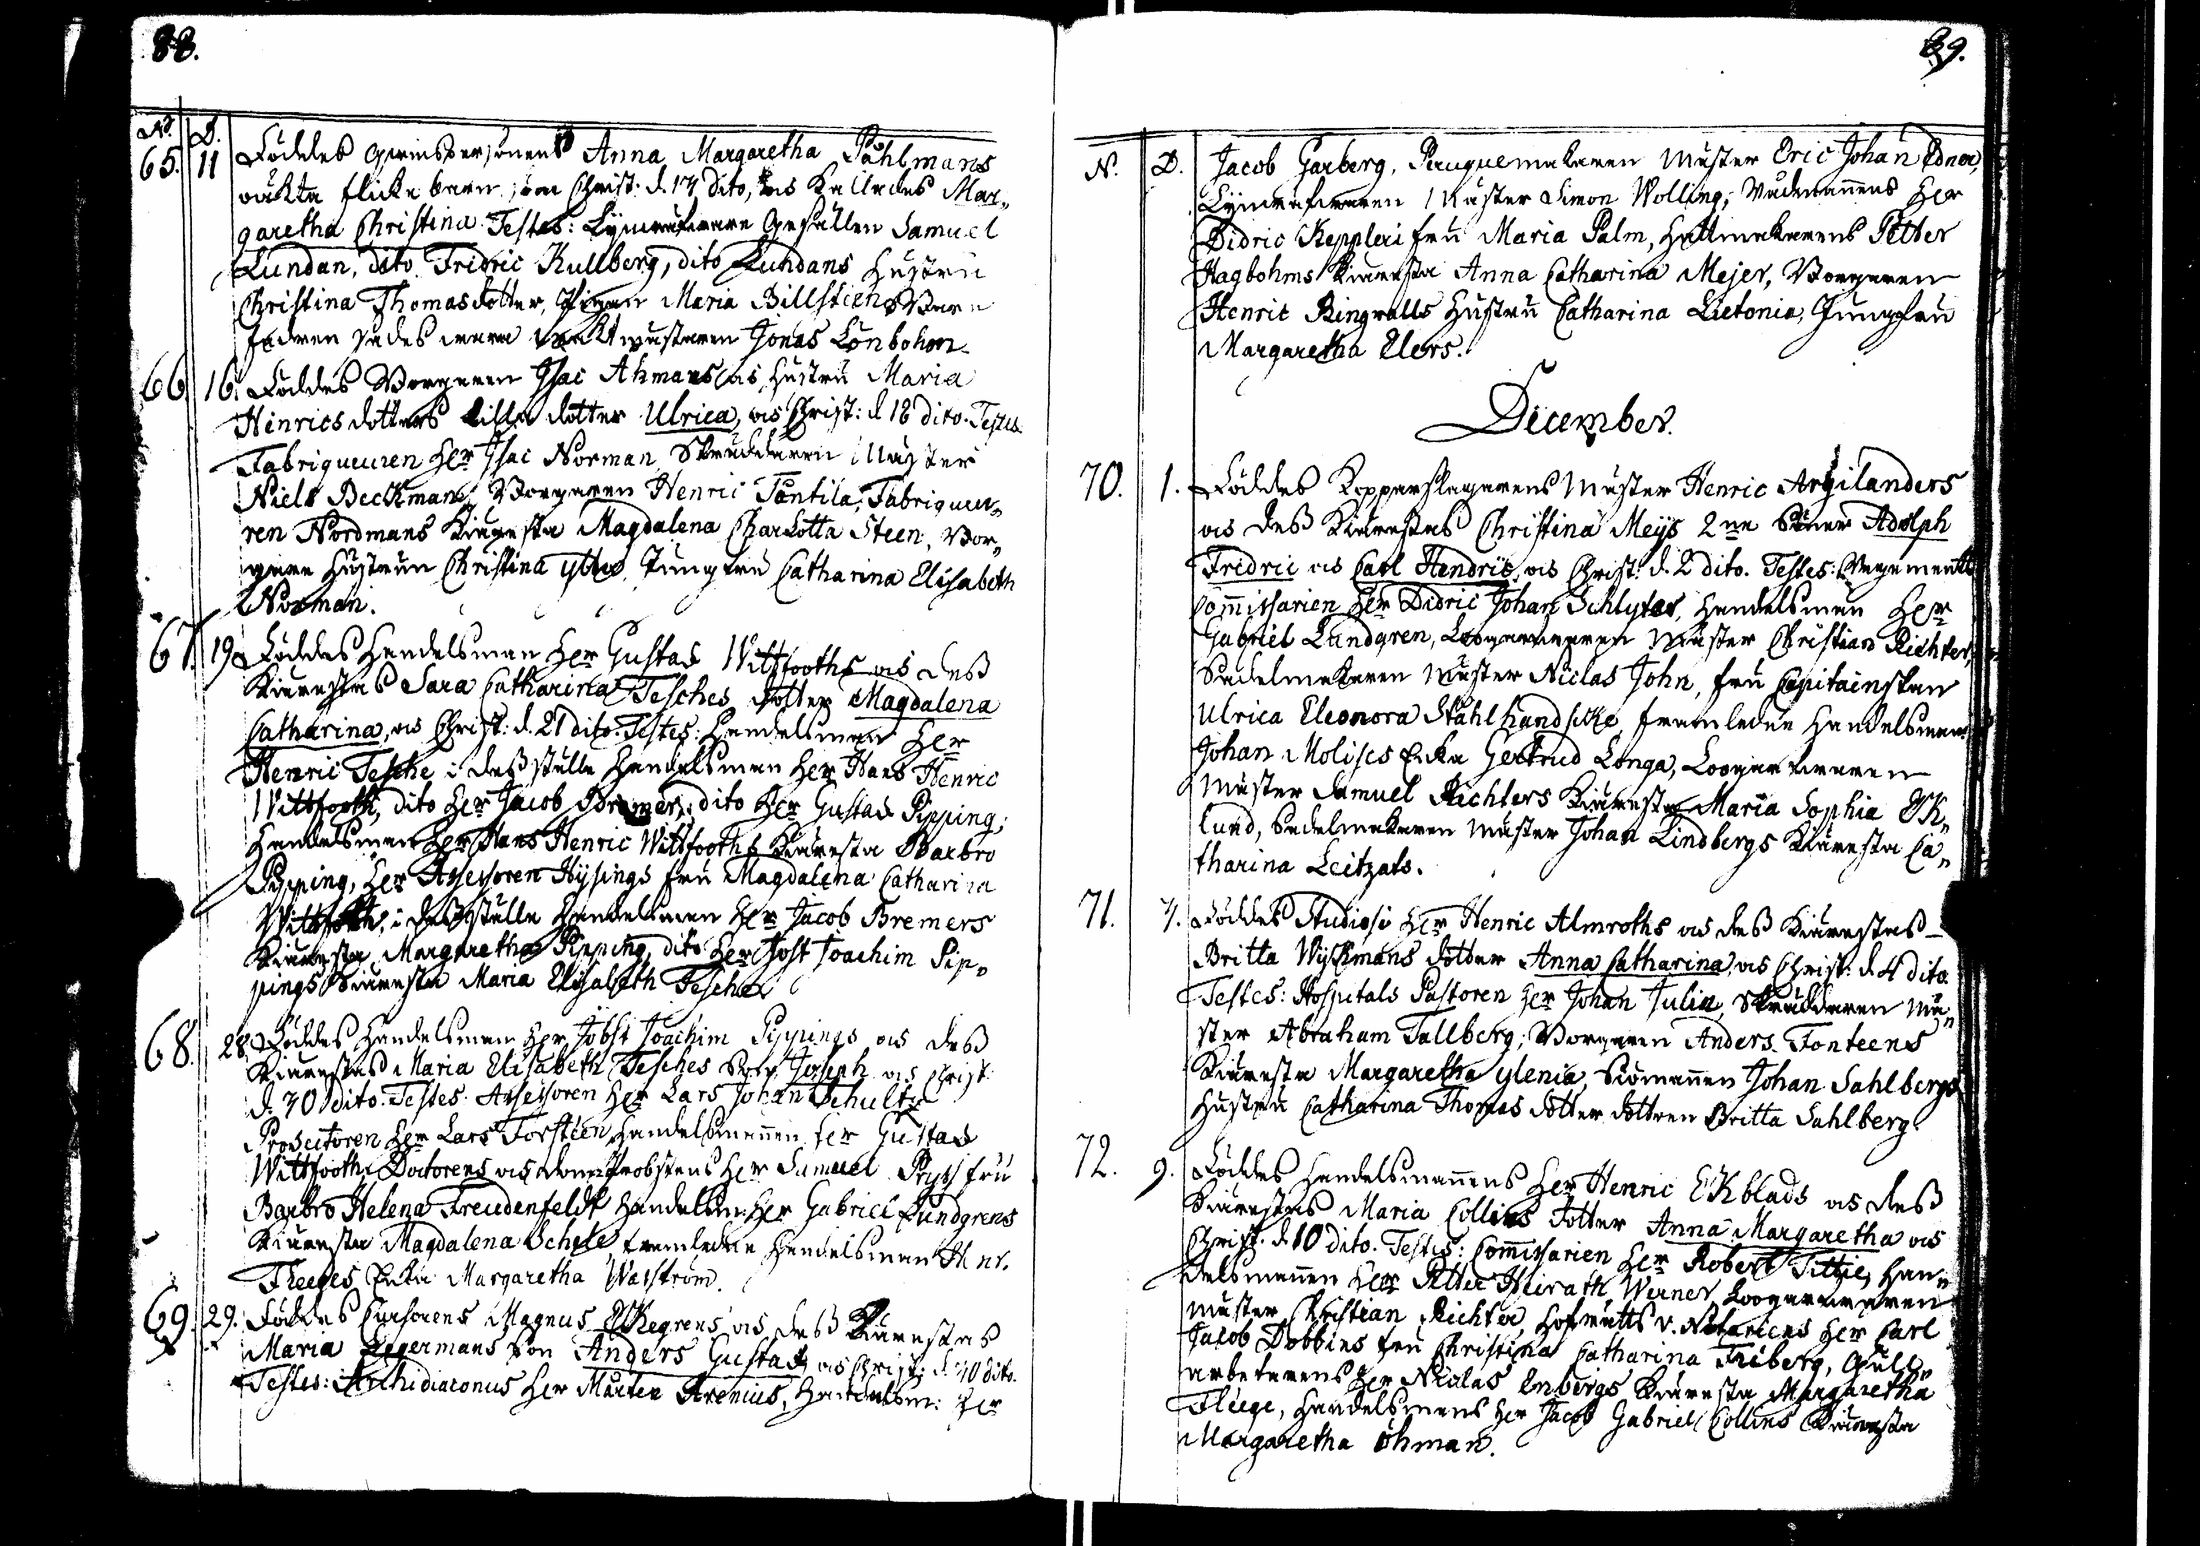 88.
No. D.
65. 11 Föddes qvinspersonens Anna Margaretha Påhlmans
oäkta flicke barn, som Christ: d. 14 dito, och kallades Mar„
garetha Christina. Testes: Gesällen Samuel
Lundan, dito Fridric Kullberg, dito Lundans hustru
Christina Thomasdotter, Pigan Maria Billsteen. Barn
fadren sades vara Jonas Lönbohm.
66. 16. Föddes Borgaren Isac Ahmans och hustru Maria
Hinricsdotters lilla dotter Ulrica, och Christ: d. 18 dito. Testes
Fabriqueuren Her Isac Norman, Skräddaren Mäster
Niels Beckman, Borgaren Henric Tontila, Fabriqueu„
ren Nordmans Käresta Magdalena Charlotta Steen, Bor„
gare hustrun Christina, Jungfru Catharina Elisabeth
Norman.
67. 19. Föddes Handelsman Her Gustaf Wittfooths och dess
Kärestas Sara Catharina Tesches dotter Magdalena
Catharina, och Christ: d. 21 dito. Testes: Handelsman Her
Henric Tesche, i dess ställe Handelsman Her Hans Henric
Wittfooth, dito Her Jacob Bremer, dito Her Gustaf Pipping,
Handelsman Her Hans Henric Wittfooths Käresta Barbro
Pipping, Her Assessoren Hysings fru Magdalena Catharina
Wittfooth, i dess ställe Handelsman Her Jacob Bremers
Käresta Margaretha Pipping, dito Her Jost Joachim Pip„
pings Käresta Maria Elisabeth Tesche.
68. 28. Föddes Handelsman Her Jobst Joachim Pippings och dess
Kärestas Maria Elisabeth Tesches Son Joseph och Christ:
d. 30 dito. Testes. Assessoren Her Lars Johan Schultz
Prosectoren Her Lars Forsteen, Handelsmannen Her Gustaf
Wittfooth, Doctorens och Domprobstens Her Samuel Pryss fru
Barbro Helena Freudenfeldt, Handelsm: Her Gabriel Lundgrens
Käresta Magdalena Schele, framledne Handelsman Henr.
Fleeges Enka Margaretha Walström.
69. 29. Föddes Cursorens Magnus Ekegrens och dess Kärestas
Maria Eggermans Son Anders Gustaf, och Christ: d. 30 dito.
Testes: Archidiaconus Her Mårten Arenius, Handelsm: Her
89.
N. D. Jacob Garberg, Peruquemakaren Mäster Eric Johan Ednor,
Mäster Simon Wolling, Rådmannens Her
Didric Kepplers fru Maria Palm, Hattmakarens Petter
Hagbohms Käresta Anna Catharina Mejer, Borgaren
Henric Ringwalls Hustru Catharina Lietonia, Jungfru
Margaretha Elers.
December.
70. 1. Föddes Kopparslagarens Mäster Henric Argilanders
och dess Kärestas Christina Meijs 2ne Söner Adolph
Fridric och Carl Hendric, och Christ: d. 2 dito. Testes: Regements
Commissarien Her Didric Johan Schlyter, Handelsman Her
Gabriel Lundgren, Loogarvaren Mäster Christian Richter,
Sadelmakaren Mäster Niclas John, fru Capitainskan
Ulrica Eleonora Stålhandsche, framledne Handelsman
Johan Molises Enka Gertrud Longa, Loogarvaren
Mäster Samuel Richters Käresta Maria Sophia Ek„
lund, Sadelmakaren Mäster Johan Lindbergs Käresta Ca„
tharina Leitzats.
71. 3. Föddes Studiosi Her Henric Almroths och dess Kärestas
Britta Wijkmans dotter Anna Catharina, och Christ: d. 4 dito.
Testes: Hospitals Pastoren Her Johan Julin, Skräddaren Mä„
ster Abraham Tallberg, Borgaren Anders Fonteens
Käresta Margaretha Ylenia, Siömannen Johan Sahlbergs
Hustru Catharina Thomas dotter, dottren Britta Sahlberg.
72. 9. Föddes Handelsmannens Her Henric Ekblads och dess
Kärestas Maria Collins dotter Anna Margaretha och
Christ. d. 10 dito. Testes: Commissarien Her Robert Tittzie, Han„
delsmannen Her Petter Heirath Werner, Loogarvaren
Mäster Christian Richter, Hofrätts v. Notariens Her Carl
Jacob Dobbins fru Christina Catharina Friberg, Gull„
arbetarens Her Niclas Enbergs Käresta Margaretha
Fleege, Handelsmans Her Jacob Gabriel Collins Käresta
Margaretha Öhman.